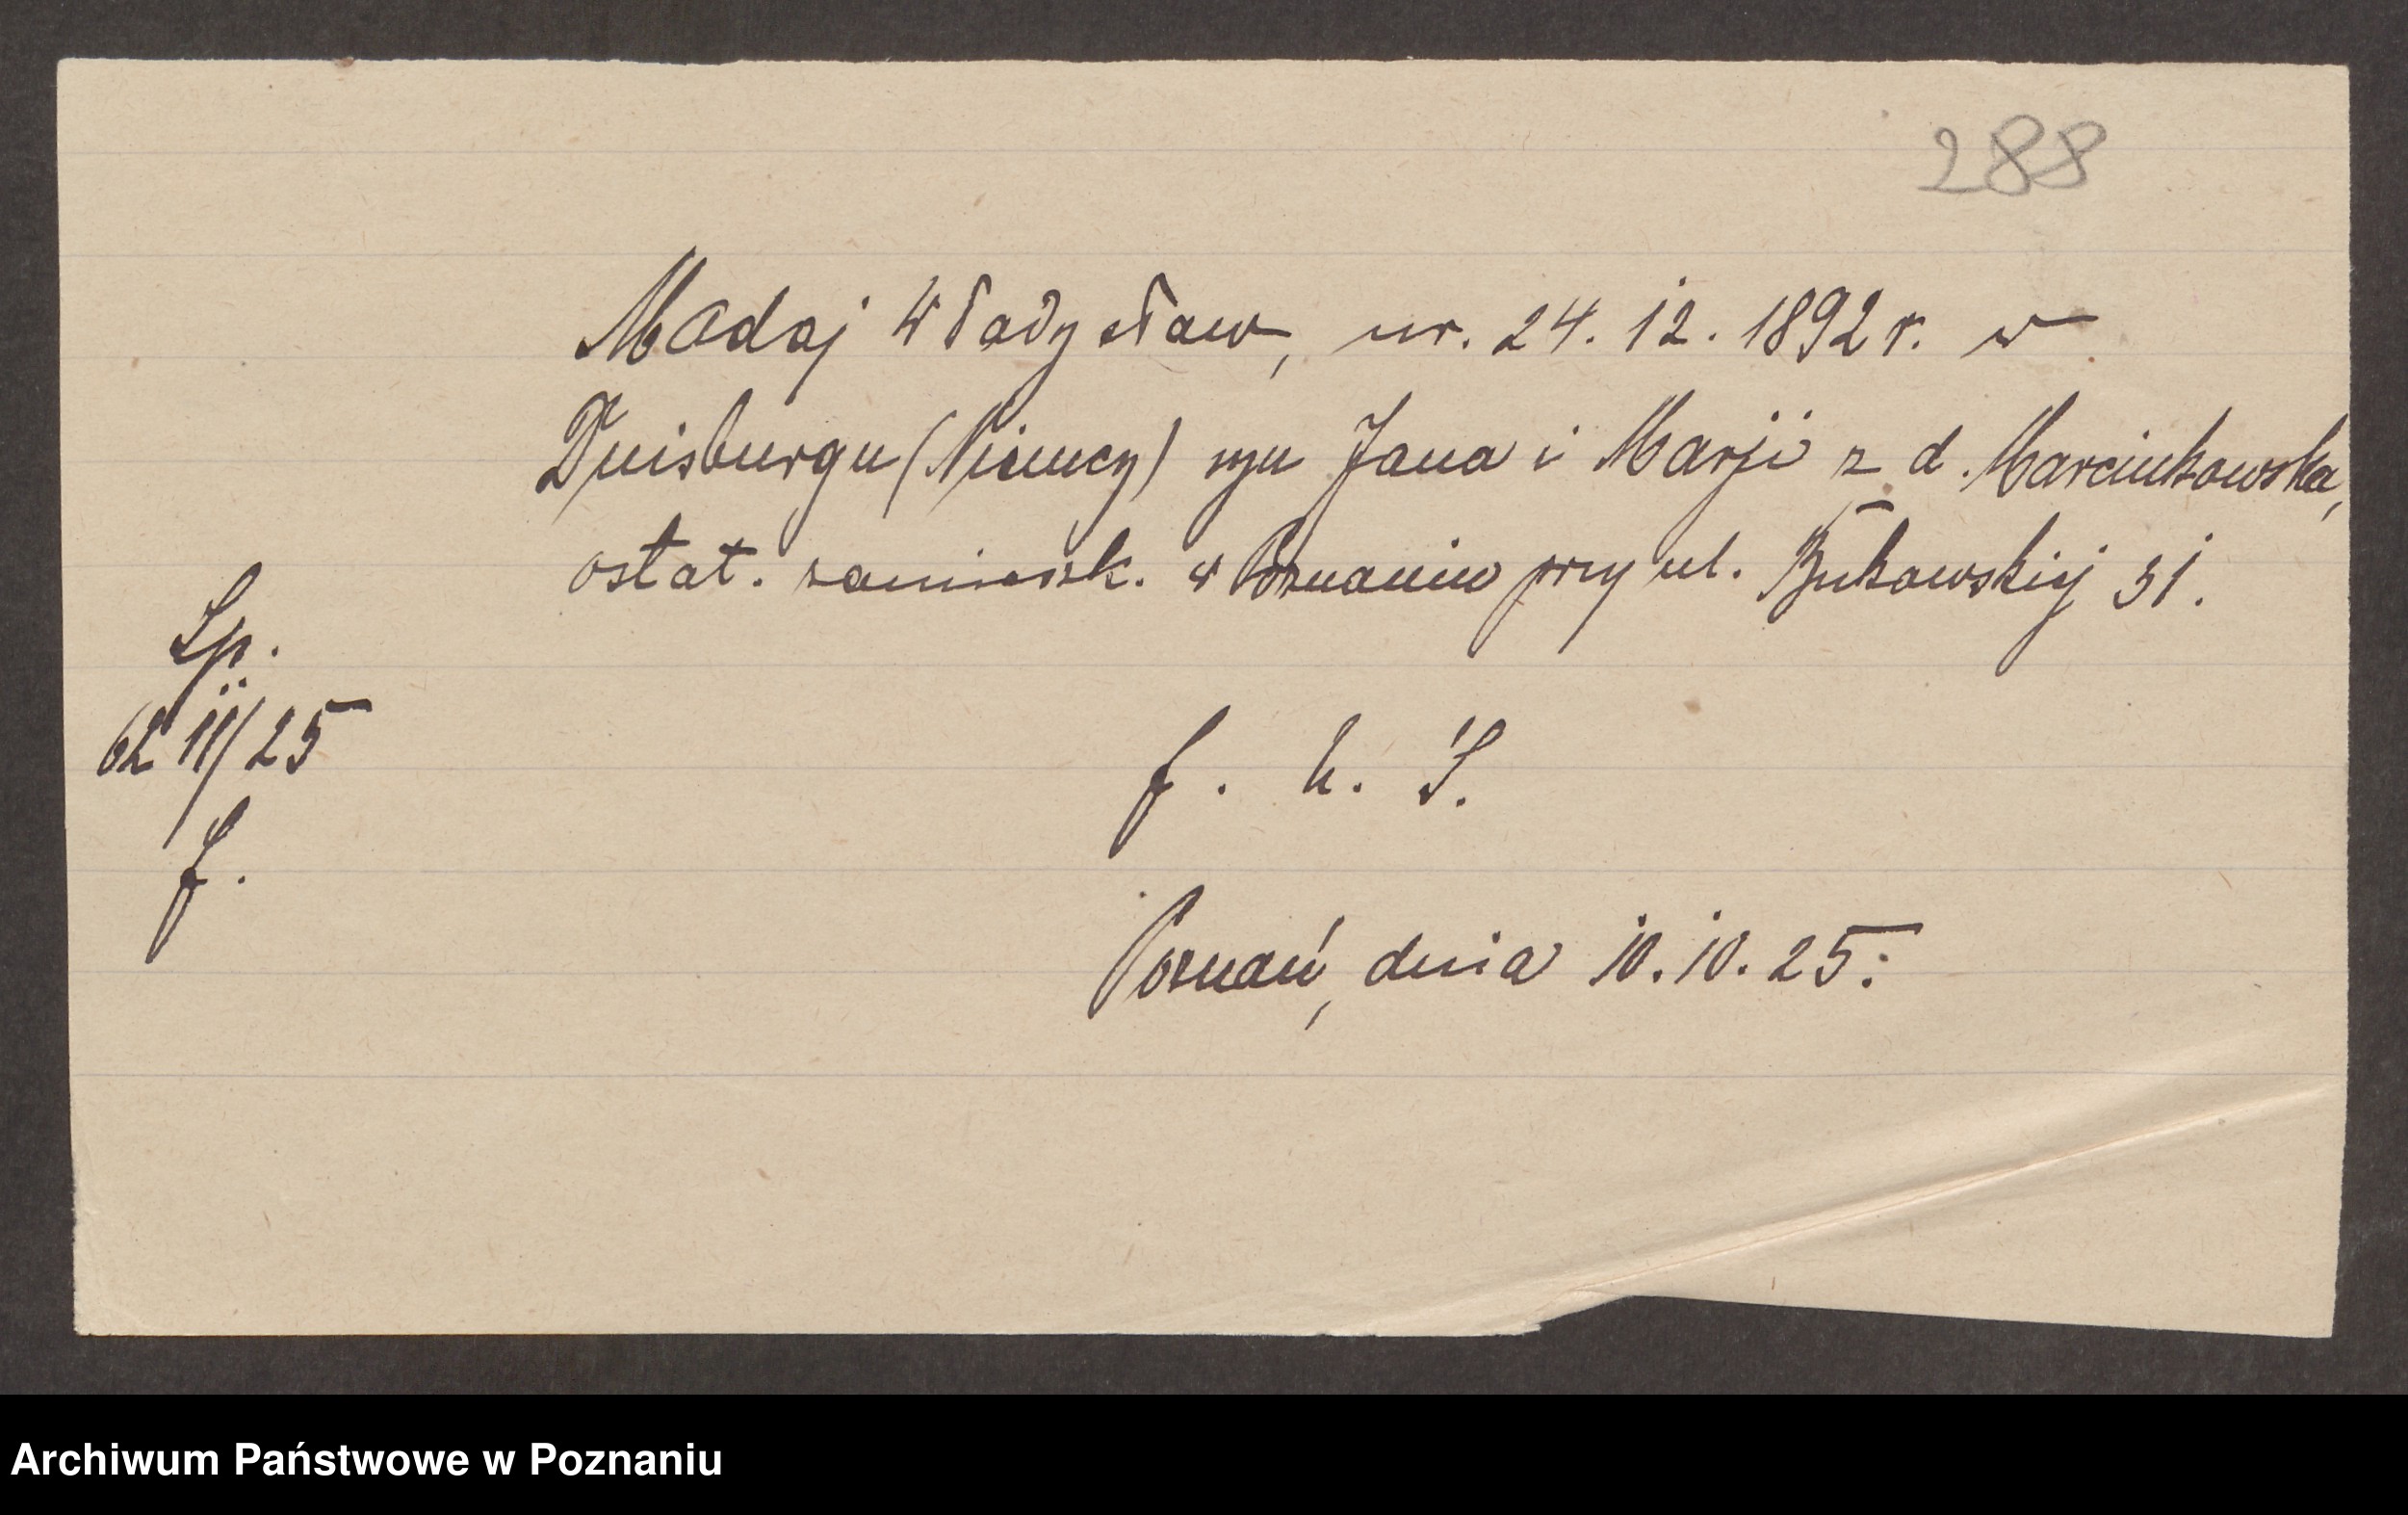 288
Madaj Władysław, ur. 24. 12. 1892 r. w
Duisburgu (Niemcy) syn Jana i Marji z d. Marcinkowska,
ostat. zamieszk. w Poznaniu przy ul. Bukowskiej 31.
Sp.
62 II/25
f.
f. k. S.
Poznań, dnia 10. 10. 25.
Archiwum Państwowe w Poznaniu